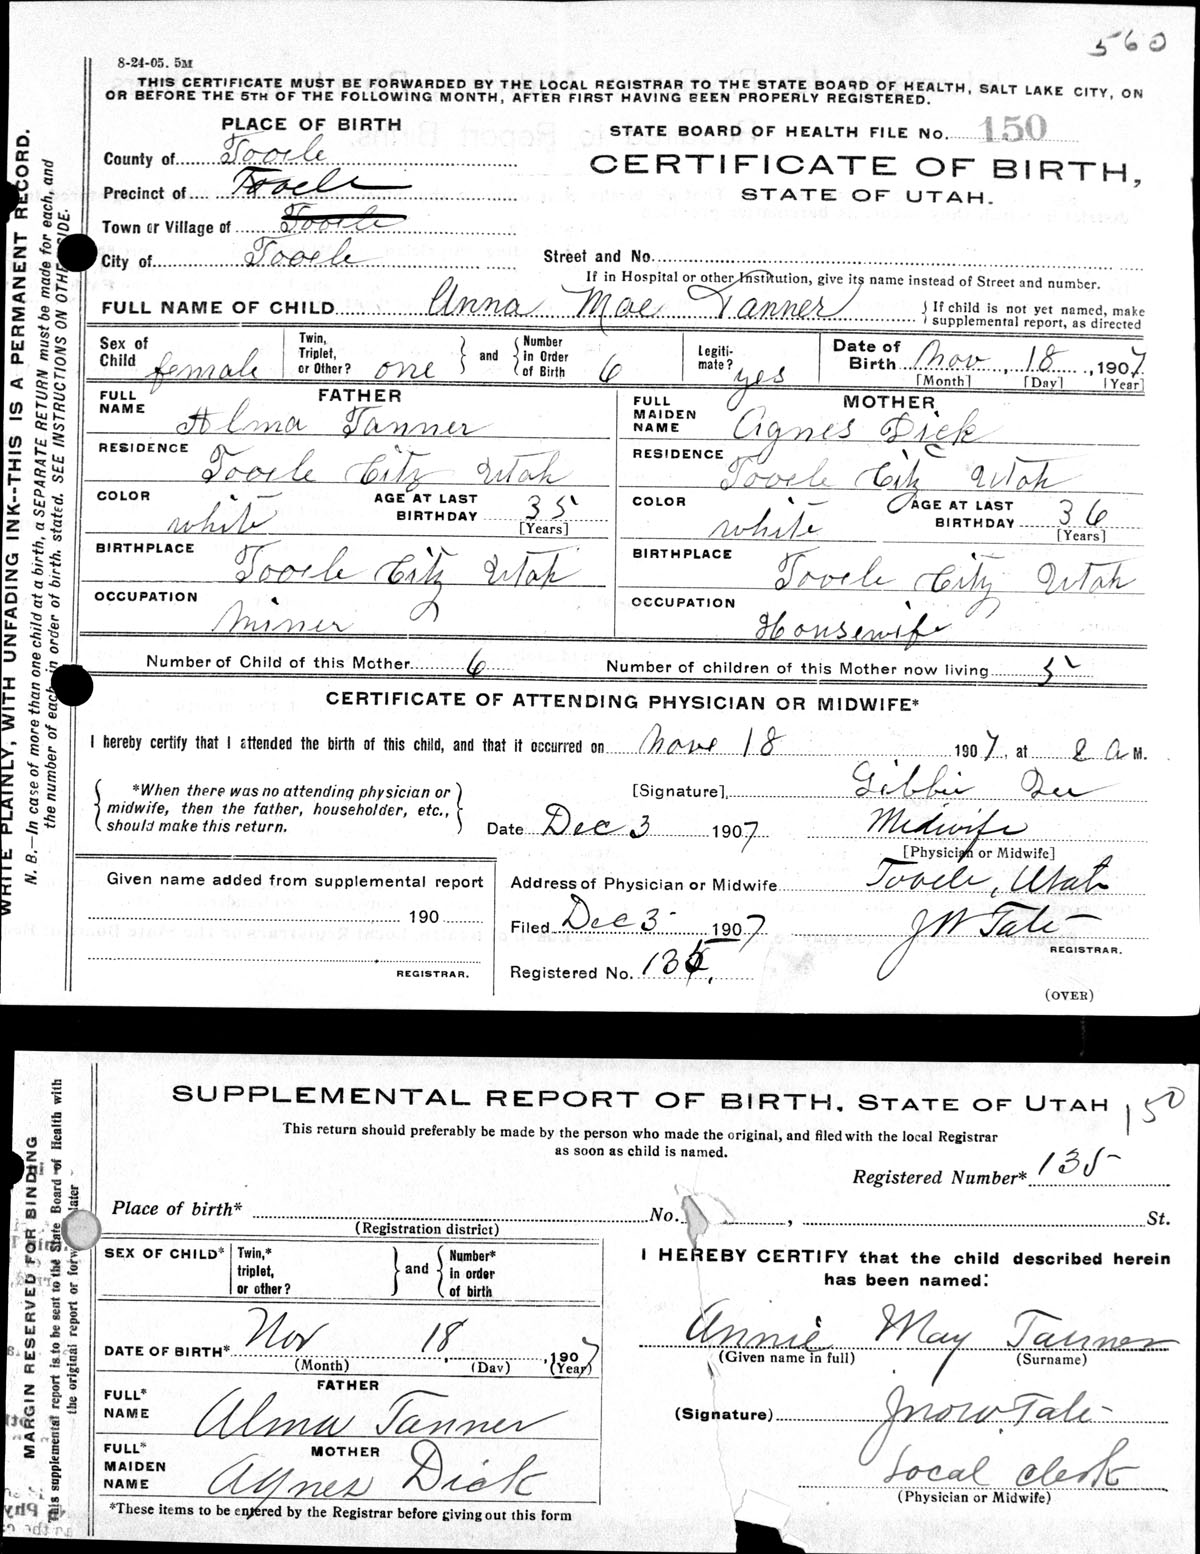 560
8-24-05. 5M
THIS CERTIFICATE MUST BE FORWARDED BY THE LOCAL REGISTRAR TO THE STATE BOARD OF HEALTH, SALT LAKE CITY, ON
OR BEFORE THE 5TH OF THE FOLLOWING MONTH, AFTER FIRST HAVING BEEN PROPERLY REGISTERED.
PLACE OF BIRTH
STATE BOARD OF HEALTH FILE No. 150
County of Tooele
CERTIFICATE OF BIRTH,
Precinct of Tooele
STATE OF UTAH.
Town or Village of Tooele
City of Tooele
Street and No.
If in Hospital or other Institution, give its name instead of Street and number.
FULL NAME OF CHILD Anna Mae Tanner
If child is not yet named, make
supplemental report, as directed
Sex of Child female
Twin, Triplet, or Other? one and Number in Order of Birth 6
Legiti-mate? yes
Date of Birth Nov, 18, 1907
[Month] [Day] [Year]
FATHER
FULL NAME Alma Tanner
RESIDENCE Tooele City Utah
COLOR white AGE AT LAST BIRTHDAY 35
[Years]
BIRTHPLACE Tooele City Utah
OCCUPATION Miner
MOTHER
FULL MAIDEN NAME Agnes Dick
RESIDENCE Tooele City Utah
COLOR white AGE AT LAST BIRTHDAY 36
[Years]
BIRTHPLACE Tooele City Utah
OCCUPATION Housewife
Number of Child of this Mother 6 Number of children of this Mother now living 5
CERTIFICATE OF ATTENDING PHYSICIAN OR MIDWIFE*
I hereby certify that I attended the birth of this child, and that it occurred on Nove 18 1907, at 2 A M.
*When there was no attending physician or
midwife, then the father, householder, etc.,
should make this return.
[Signature] Gibbie Gee
Date Dec 3 1907 Midwife
[Physician or Midwife]
Given name added from supplemental report
190
REGISTRAR.
Address of Physician or Midwife Tooele, Utah
Filed Dec 3 1907 J W Tate
REGISTRAR.
Registered No. 135
(OVER)
WRITE PLAINLY, WITH UNFADING INK--THIS IS A PERMANENT RECORD.
N. B.—In case of more than one child at a birth, a SEPARATE RETURN must be made for each, and
the number of each, in order of birth, stated. SEE INSTRUCTIONS ON OTHER SIDE.
SUPPLEMENTAL REPORT OF BIRTH, STATE OF UTAH 150
This return should preferably be made by the person who made the original, and filed with the local Registrar
as soon as child is named.
Registered Number* 135
Place of birth* No. , St.
(Registration district)
SEX OF CHILD* Twin,* triplet, or other? and Number* in order of birth
DATE OF BIRTH* Nov 18, 1907
(Month) (Day) (Year)
FATHER
FULL* NAME Alma Tanner
MOTHER
FULL* MAIDEN NAME Agnes Dick
*These items to be entered by the Registrar before giving out this form
I HEREBY CERTIFY that the child described herein
has been named:
Annie May Tanner
(Given name in full) (Surname)
(Signature) Jnow Tate
Local Clerk
(Physician or Midwife)
MARGIN RESERVED FOR BINDING
This supplemental report is to be sent to the State Board of Health with
the original report or forw later